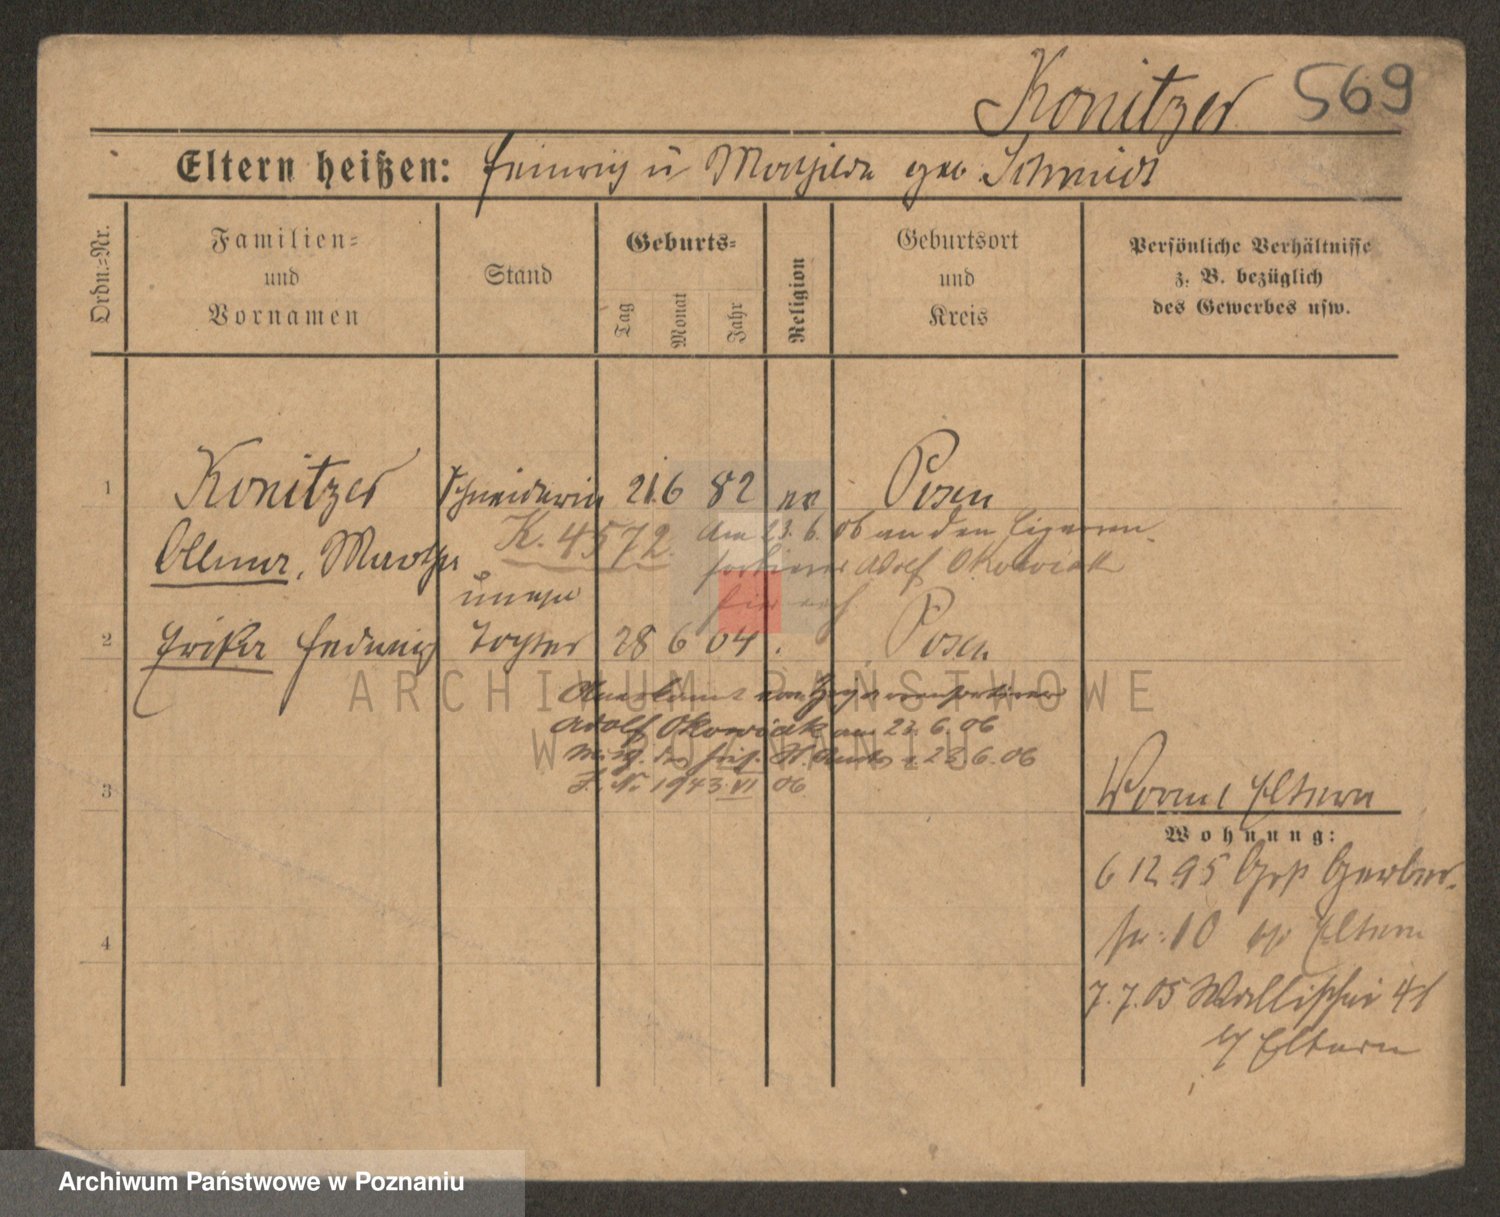 Konitzer 569
Eltern heißen: Heinrich u Mathilde geb Schmidt
Ordn.-Nr.
Familien-
und
Vornamen
Stand
Geburts-
Tag
Monat
Jahr
Religion
Geburtsort
und
Kreis
Persönliche Verhältnisse
z. B. bezüglich
des Gewerbes usw.
1 Konitzer Schneiderin 21. 6 82 ev Posen
Martha
K. 4572. Am 23. 6. 06 an den Cigarren-
sortierer Adolf Okowiak
unehe
2 Erika Hedwig Tochter 28 6 04 . Posen
Adolf Okowiak am 23. 6. 06
23. 6. 06
J. No 1943 VI 06
ARCHIWUM PAŃSTWOWE
W POZNANIU
3
4
Eltern
Wohnung:
6 12 95 Gerber-
str. 10 Eltern
7. 7. 05 Wallischei
b/ Eltern
Archiwum Państwowe w Poznaniu